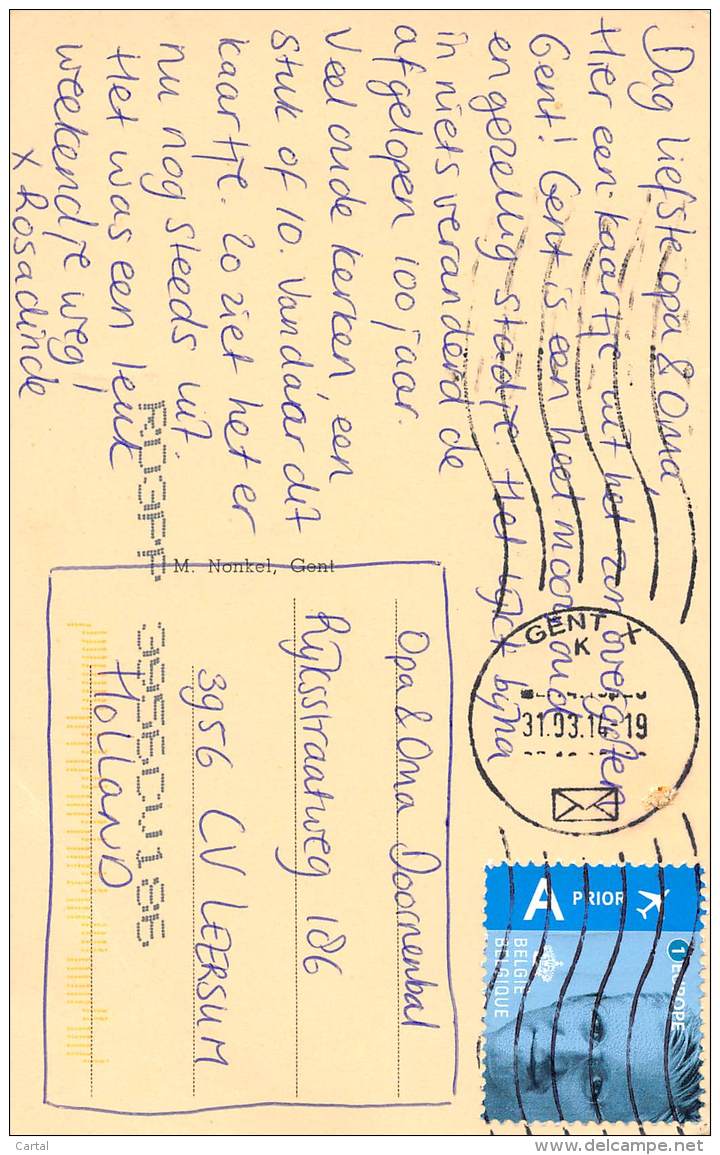 Dag liefste opa & Oma,
Hier een kaartje uit het zonovergoten
Gent! Gent is een heel mooi oud
en gezellig stadje. Het lijkt bijna
in niets veranderd de
afgelopen 100 jaar.
Veel oude kerken, een
stuk of 10. Vandaar dit
kaartje. Zo ziet het er
nu nog steeds uit.
Het was een leuk
weekendje weg!
x Rosadinde
M. Nonkel, Gent
Opa & Oma Doornenbal
Rijksstraatweg 186
3956 CV LEERSUM
HOLLAND
3956CV186
GENT X
K
31.03.14-19
A PRIOR
1 EUROPE
BELGIE
BELGIQUE
Cartal
www.delcampe.net